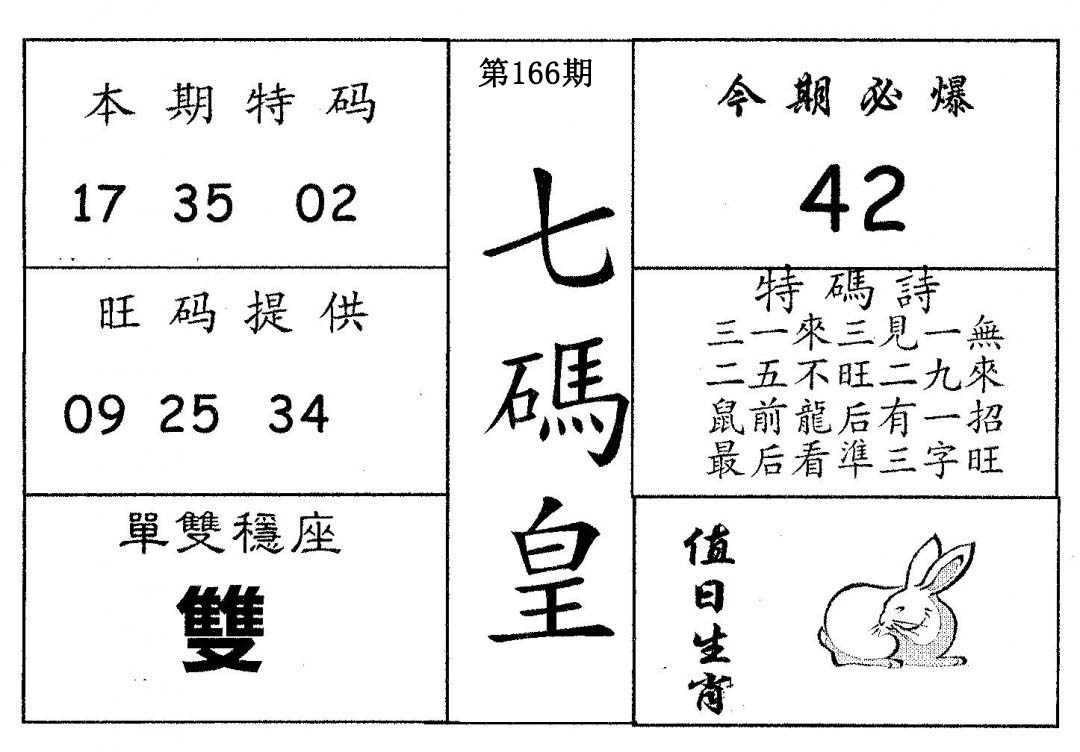 本期特码
17 35 02
旺码提供
09 25 34
單雙穩座
雙
第166期
七碼皇
今期必爆
42
特碼詩
三一來三見一無
二五不旺二九來
鼠前龍后有一招
最后看準三字旺
值日生肖